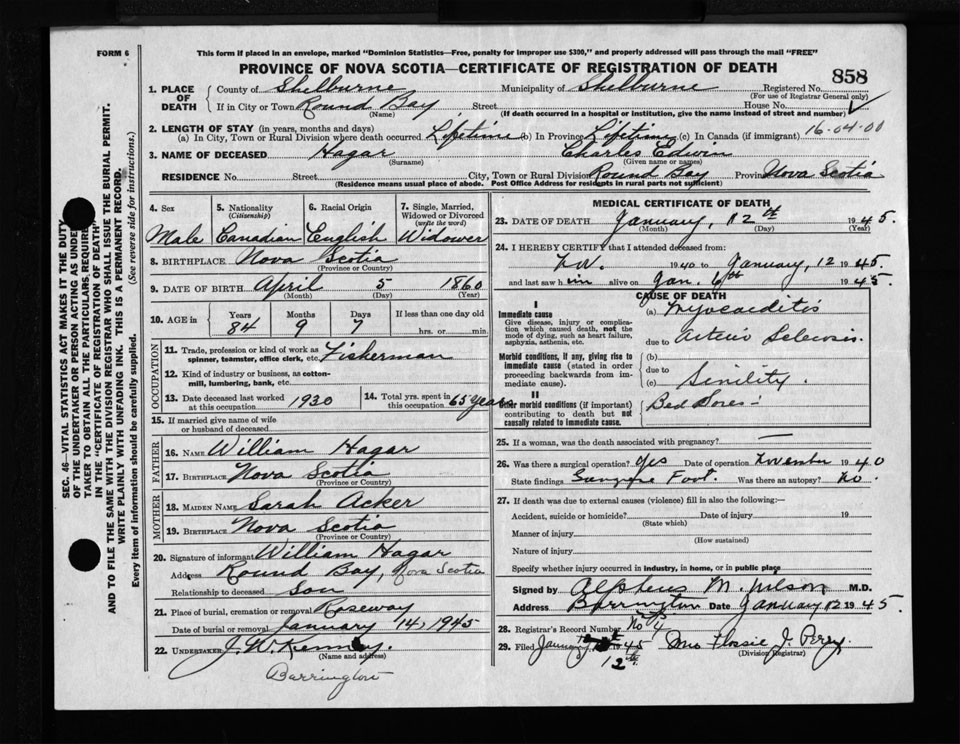 FORM 6
This form if placed in an envelope, marked "Dominion Statistics—Free, penalty for improper use $300," and properly addressed will pass through the mail "FREE"
PROVINCE OF NOVA SCOTIA—CERTIFICATE OF REGISTRATION OF DEATH
858
1. PLACE OF DEATH
County of Shelburne Municipality of Shelburne Registered No.
(For use of Registrar General only)
If in City or Town Round Bay Street House No.
(Name) (If death occurred in a hospital or institution, give the name instead of street and number)
2. LENGTH OF STAY (in years, months and days)
(a) In City, Town or Rural Division where death occurred Lifetime (b) In Province Lifetime (c) In Canada (if immigrant) 16-04-00
3. NAME OF DECEASED Hagar Charles Edwin
(Surname) (Given name or names)
RESIDENCE No. Street City, Town or Rural Division Round Bay Province Nova Scotia
(Residence means usual place of abode. Post Office Address for residents in rural parts not sufficient)
4. Sex
Male
5. Nationality
(Citizenship)
Canadian
6. Racial Origin
English
7. Single, Married, Widowed or Divorced
(write the word)
Widower
8. BIRTHPLACE Nova Scotia
(Province or Country)
9. DATE OF BIRTH April 5 1860
(Month) (Day) (Year)
10. AGE in Years Months Days If less than one day old
84 9 7 hrs. or min.
OCCUPATION
11. Trade, profession or kind of work as Fisherman
spinner, teamster, office clerk, etc.
12. Kind of industry or business, as cotton-
mill, lumbering, bank, etc.
13. Date deceased last worked at this occupation 1930
14. Total yrs. spent in this occupation 65 years
15. If married give name of wife
or husband of deceased
FATHER
16. NAME William Hagar
17. BIRTHPLACE Nova Scotia
(Province or Country)
MOTHER
18. MAIDEN NAME Sarah Acker
19. BIRTHPLACE Nova Scotia
(Province or Country)
20. Signature of informant William Hagar
Address Round Bay, Nova Scotia
Relationship to deceased Son
21. Place of burial, cremation or removal Roseway
Date of burial or removal January 14, 1945
22. UNDERTAKER J. W. Kenney.
(Name and address)
Barrington
MEDICAL CERTIFICATE OF DEATH
23. DATE OF DEATH January, 12th 1945.
(Month) (Day) (Year)
24. I HEREBY CERTIFY that I attended deceased from:
1940 to January, 12 1945
and last saw him alive on Jan. 6th 1945.
CAUSE OF DEATH
I
Immediate cause
Give disease, injury or complication which caused death, not the mode of dying, such as heart failure, asphyxia, asthenia, etc.
(a) Myocarditis
due to Arterio Sclerosis.
Morbid conditions, if any, giving rise to immediate cause (stated in order proceeding backwards from immediate cause).
(b)
due to
(c) Senility.
II
Other morbid conditions (if important) contributing to death but not causally related to immediate cause.
Bed Sores-
25. If a woman, was the death associated with pregnancy? —
26. Was there a surgical operation? Yes Date of operation November 1940
State findings Foot. Was there an autopsy? No.
27. If death was due to external causes (violence) fill in also the following:—
Accident, suicide or homicide? Date of injury 19
(State which)
Manner of injury
(How sustained)
Nature of injury
Specify whether injury occurred in industry, in home, or in public place
Signed by Alpheus M. Wilson M.D.
Address Barrington Date January 12 1945.
28. Registrar's Record Number No 4
29. Filed January 12th 1945 Mrs Flossie J. Perry.
(Division Registrar)
SEC. 46—VITAL STATISTICS ACT MAKES IT THE DUTY
OF THE UNDERTAKER OR PERSON ACTING AS UNDER-
TAKER TO OBTAIN ALL THE PARTICULARS REQUIRED
IN THE "CERTIFICATE OF REGISTRATION OF DEATH"
AND TO FILE THE SAME WITH THE DIVISION REGISTRAR WHO SHALL ISSUE THE BURIAL PERMIT.
WRITE PLAINLY WITH UNFADING INK. THIS IS A PERMANENT RECORD.
Every item of information should be carefully supplied. (See reverse side for instructions.)